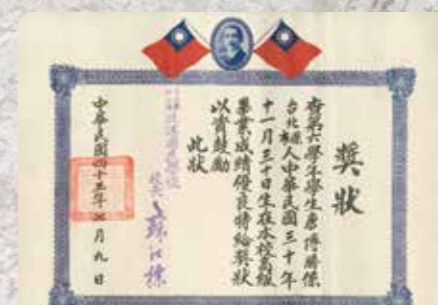 獎狀
查第六學年學生唐得勝係
台北縣人中華民國三十年
十一月三十日生在本校高級
畢業成績優良特給獎狀
以資鼓勵
此狀
校長蘇江標
中華民國四十三年七月九日